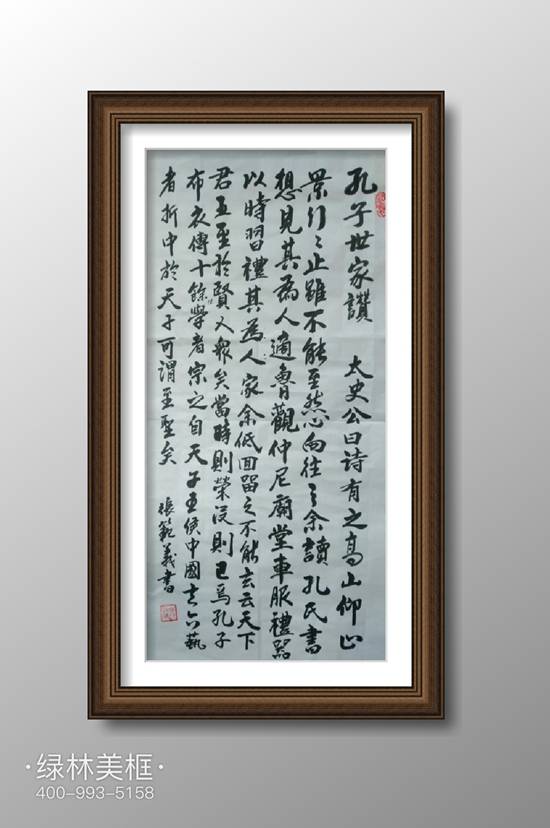 孔子世家讚 太史公曰诗有之高山仰止
景行〻止雖不能至然心向往之余讀孔氏書
想見其為人適魯觀仲尼廟堂車服禮器
以時習禮其為人家余低回留之不能去云天下
君王至於賢人衆矣當時則榮沒則已焉孔子
布衣傳十餘學者宗之自天子王侯中國言六藝
者折中於天子可謂至聖矣
張範義書
·绿林美框·
400-993-5158